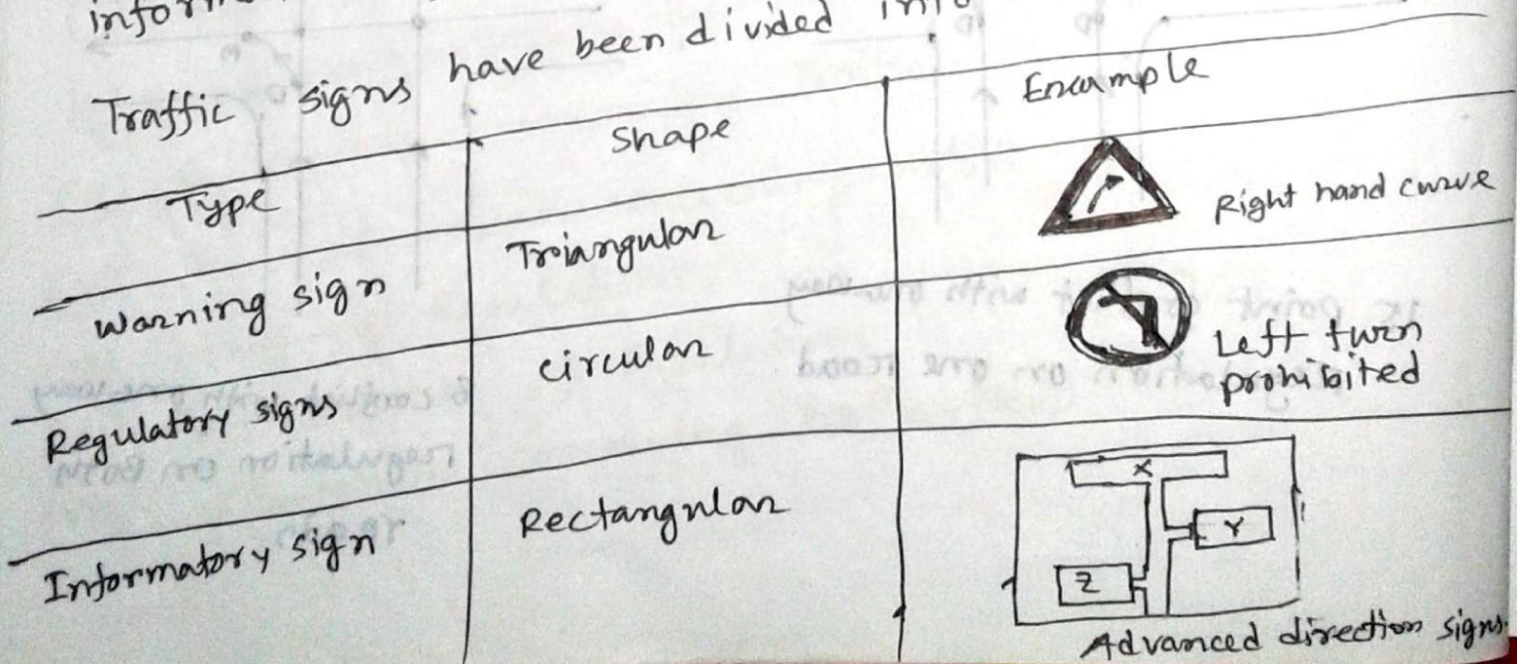 Traffic signs have been divided
Type Shape Example
Warning sign Triangular Right hand curve
Regulatory signs circular Left turn
prohibited
Informatory sign Rectangular X
Y
Z
Advanced direction signs.